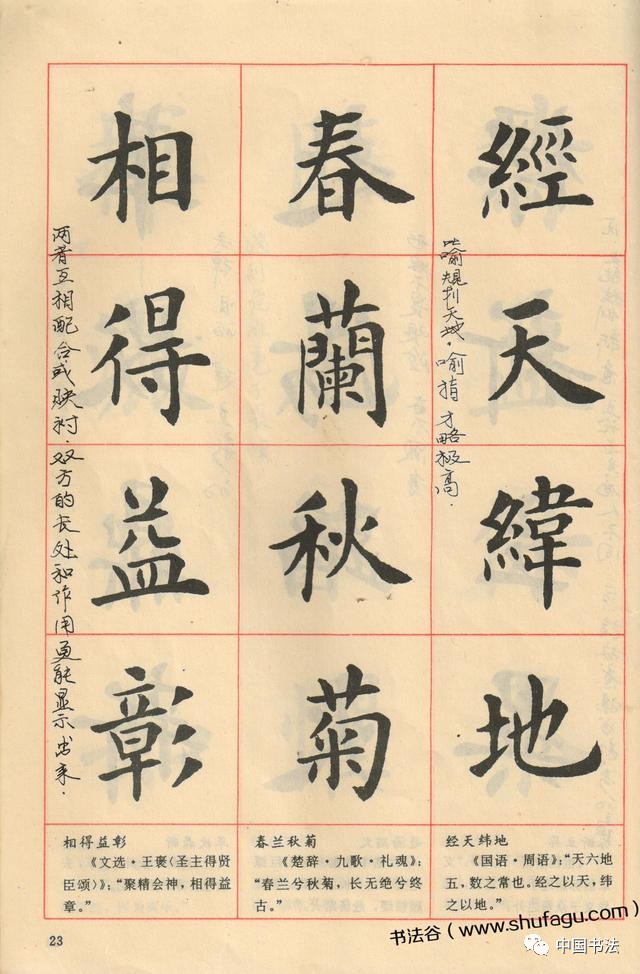 經天緯地
比喻规划天地．喻指才略极高．
春蘭秋菊
相得益彰
两者互相配合或映衬．双方的长处和作用更能显示出来．
经天纬地
《国语·周语》：“天六地
五，数之常也。经之以天，纬
之以地。”
春兰秋菊
《楚辞·九歌·礼魂》：
“春兰兮秋菊，长无绝兮终
古。”
相得益彰
《文选·王褒〈圣主得贤
臣颂〉》：“聚精会神，相得益
章。”
23
书法谷（www.shufagu.com）
中国书法